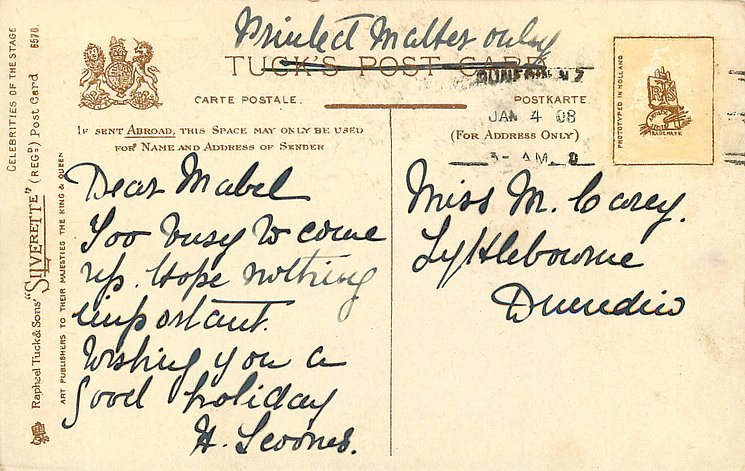 Printed Matter only
TUCK'S POST CARD
CARTE POSTALE.
POSTKARTE
IF SENT ABROAD, THIS SPACE MAY ONLY BE USED
FOR NAME AND ADDRESS OF SENDER
(FOR ADDRESS ONLY)
DUNEDIN NZ
JAN 4 08
3- AM
PHOTOTYPED IN HOLLAND
TRADEMARK
CELEBRITIES OF THE STAGE
6570.
Raphael Tuck & Sons' "SILVERETTE" (REGD) Post Card
ART PUBLISHERS TO THEIR MAJESTIES THE KING & QUEEN
Dear Mabel
Too busy to come
up. Hope nothing
important.
Wishing you a
good holiday
H. Scoones.
Miss M. Carey.
Lyttlebourne
Dunedin